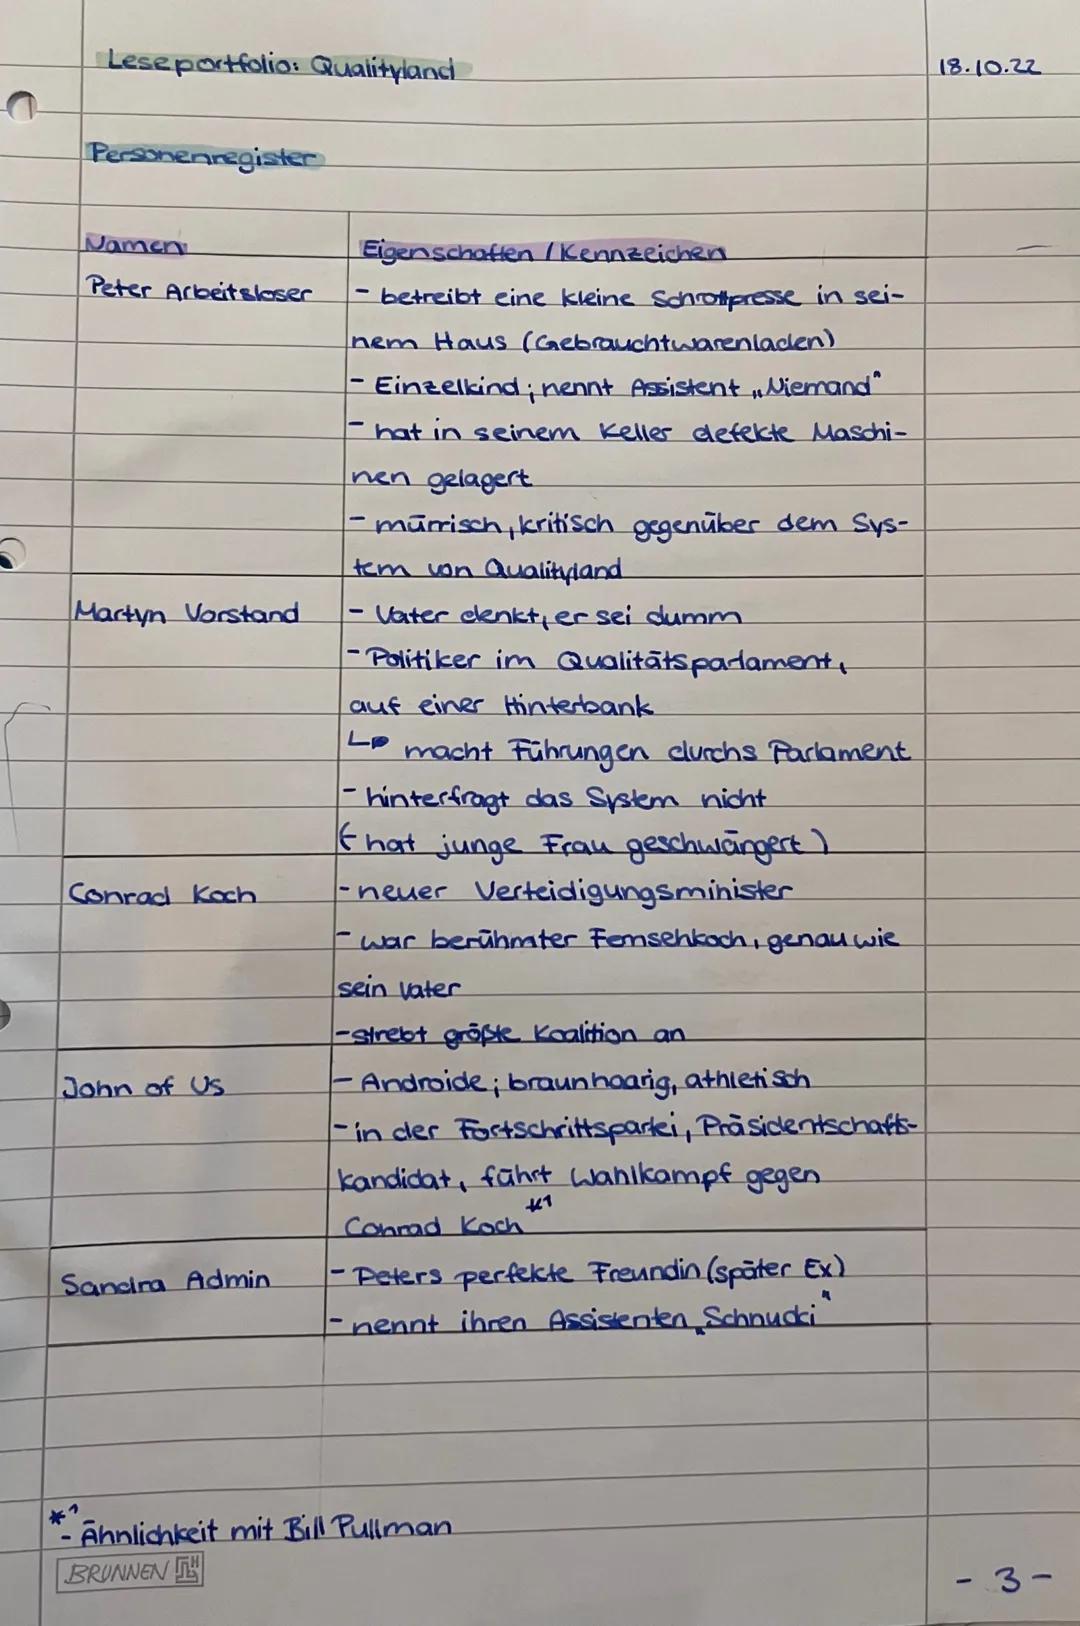 Leseportfolio: Qualityland
18.10.22
Personenregister
Namen
Eigenschaften / Kennzeichen
Peter Arbeitsloser
- betreibt eine kleine Schrottpresse in sei-
nem Haus (Gebrauchtwarenladen)
- Einzelkind; nennt Assistent „Niemand"
- hat in seinem Keller defekte Maschi-
nen gelagert
- mürrisch, kritisch gegenüber dem Sys-
tem von Qualityland
Martyn Vorstand
- Vater denkt, er sei dumm
- Politiker im Qualitätsparlament,
auf einer Hinterbank
↳ macht Führungen durchs Parlament
- hinterfragt das System nicht
(hat junge Frau geschwängert)
Conrad Koch
- neuer Verteidigungsminister
- war berühmter Fernsehkoch, genau wie
sein Vater
- strebt größte Koalition an
John of Us
- Androide; braunhaarig, athletisch
- in der Fortschrittspartei, Präsidentschafts-
kandidat, führt Wahlkampf gegen
Conrad Koch *1
Sandra Admin
- Peters perfekte Freundin (später Ex)
- nennt ihren Assistenten „Schnucki"
*1
- Ähnlichkeit mit Bill Pullman
BRUNNEN
- 3 -